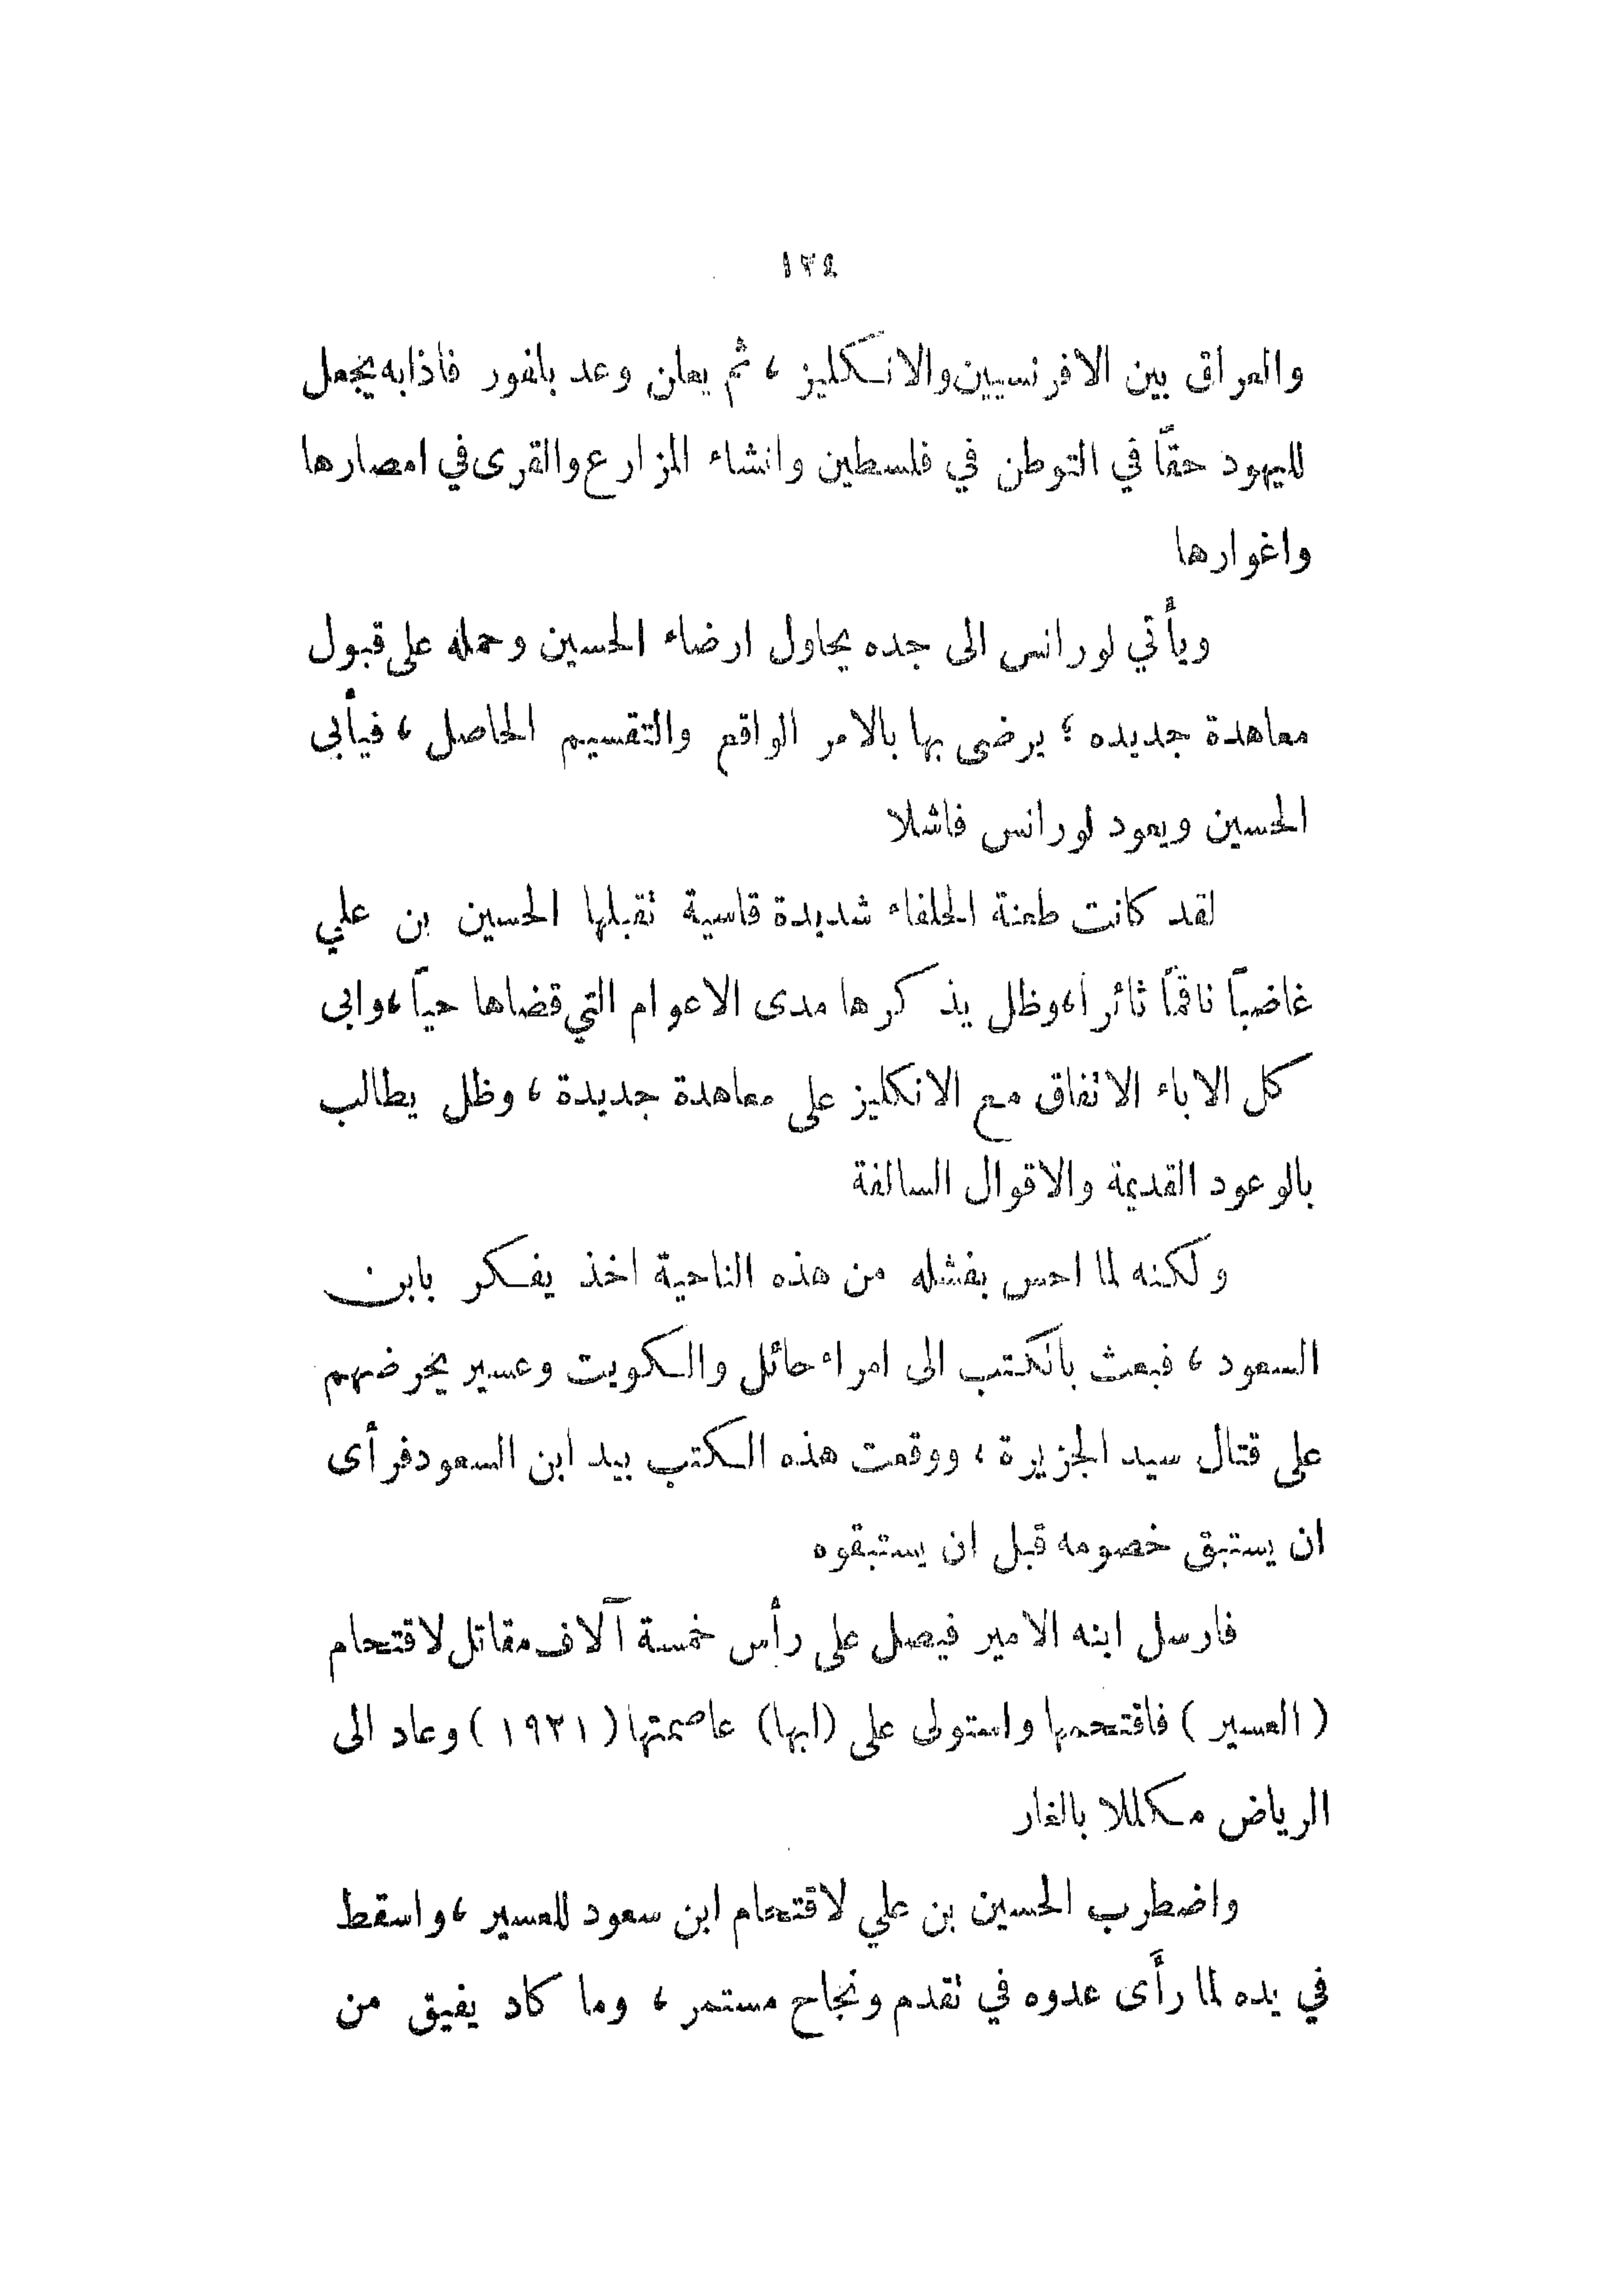 ١٢٤
والعراق بين الافرنسيين والانكليز ، ثم يعلن وعد بلفور فاذا به يجعل
لليهود حقاً في التوطن في فلسطين وانشاء المزارع والقرى في امصارها
واغوارها
ويأتي لورانس الى جده يحاول ارضاء الحسين وحمله على قبول
معاهدة جديده ؛ يرضى بها بالامر الواقع والتقسيم الحاصل ، فيأبى
الحسين ويعود لورانس فاشلا
لقد كانت طعنة الحلفاء شديدة قاسية تقبلها الحسين بن علي
غاضباً ناقماً ثائراً ، وظل يذكرها مدى الاعوام التي قضاها حياً ، وابى
كل الاباء الاتفاق مع الانكليز على معاهدة جديدة ، وظل يطالب
بالوعود القديمة والاقوال السالفة
ولكنه لما احس بفشله من هذه الناحية اخذ يفكر بابن
السعود ، فبعث بالكتب الى امراء حائل والكويت وعسير يحرضهم
على قتال سيد الجزيرة ، ووقعت هذه الكتب بيد ابن السعود فرأى
ان يستبق خصومه قبل ان يستبقوه
فارسل ابنه الامير فيصل على رأس خمسة آلاف مقاتل لاقتحام
( العسير ) فاقتحمها واستولى على (ابها) عاصمتها ( ١٩٢١ ) وعاد الى
الرياض مكللا بالغار
واضطرب الحسين بن علي لاقتحام ابن سعود للعسير ، واسقط
في يده لما رأى عدوه في تقدم ونجاح مستمر ، وما كاد يفيق من